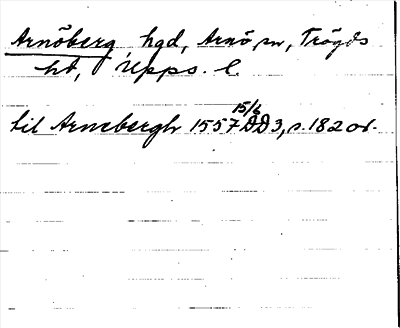 Arnöberg, hgd, Arnö sn, Trögds
hd, Upps. l.
15/6
til Arnebergh 1557 DD3, s. 182 or.